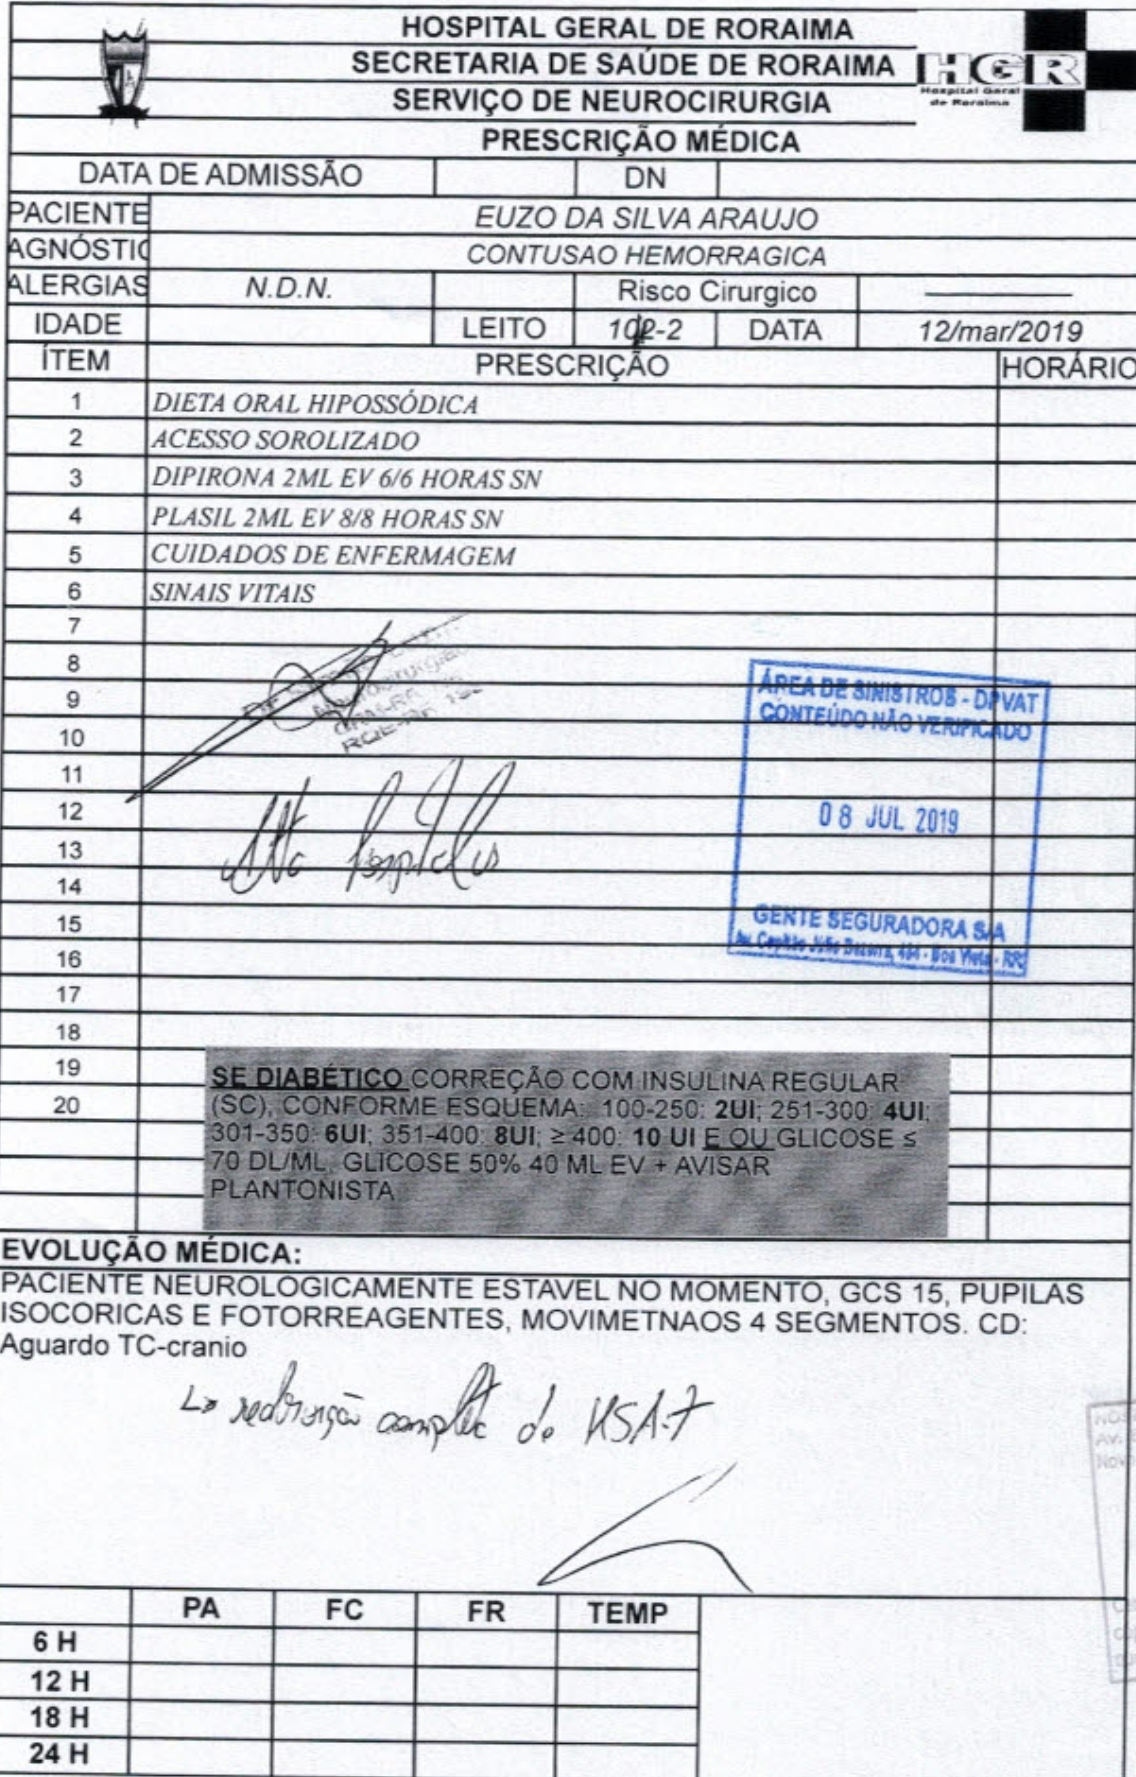 HOSPITAL GERAL DE RORAIMA
SECRETARIA DE SAÚDE DE RORAIMA
SERVIÇO DE NEUROCIRURGIA
HGR
Hospital Geral
de Roraima
PRESCRIÇÃO MÉDICA
DATA DE ADMISSÃO DN
PACIENTE EUZO DA SILVA ARAUJO
AGNÓSTIC CONTUSAO HEMORRAGICA
ALERGIAS N.D.N. Risco Cirurgico
IDADE LEITO 102-2 DATA 12/mar/2019
ÍTEM PRESCRIÇÃO HORÁRIO
1 DIETA ORAL HIPOSSÓDICA
2 ACESSO SOROLIZADO
3 DIPIRONA 2ML EV 6/6 HORAS SN
4 PLASIL 2ML EV 8/8 HORAS SN
5 CUIDADOS DE ENFERMAGEM
6 SINAIS VITAIS
7
8
9
10
11
12
13
14
15
16
17
18
19
20
Alta
ÁREA DE SINISTROS - DPVAT
CONTEÚDO NÃO VERIFICADO
08 JUL 2019
GENTE SEGURADORA S/A
SE DIABÉTICO CORREÇÃO COM INSULINA REGULAR
(SC), CONFORME ESQUEMA: 100-250: 2UI; 251-300: 4UI;
301-350: 6UI; 351-400: 8UI; ≥ 400: 10 UI E OU GLICOSE ≤
70 DL/ML, GLICOSE 50% 40 ML EV + AVISAR
PLANTONISTA
EVOLUÇÃO MÉDICA:
PACIENTE NEUROLOGICAMENTE ESTAVEL NO MOMENTO, GCS 15, PUPILAS
ISOCORICAS E FOTORREAGENTES, MOVIMETNAOS 4 SEGMENTOS. CD:
Aguardo TC-cranio
de HSA-T
PA FC FR TEMP
6 H
12 H
18 H
24 H